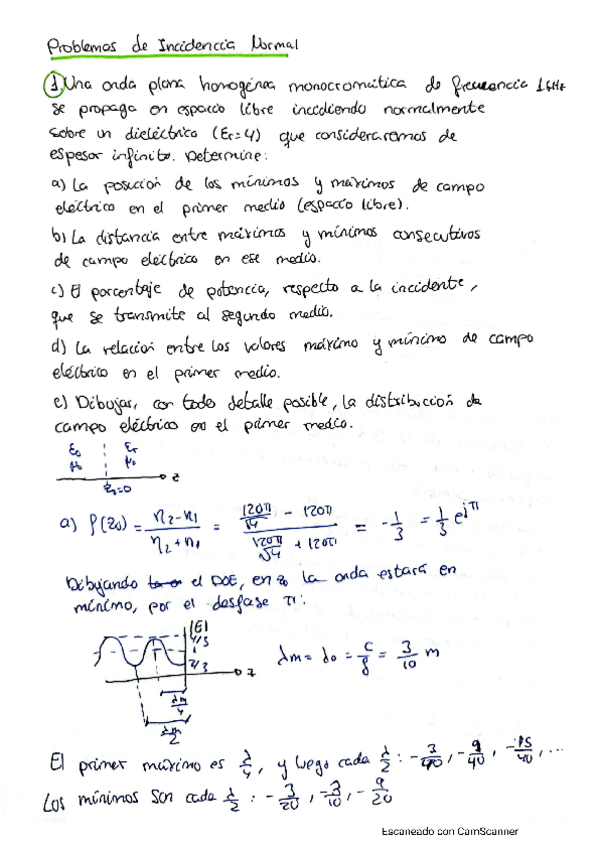 Problemas de Incidencia Normal
1. Una onda plana homogénea monocromática de frecuencia 1GHz
se propaga en espacio libre incidiendo normalmente
sobre un dieléctrico (Er=4) que consideraremos de
espesor infinito. Determine:
a) La posición de los mínimos y máximos de campo
eléctrico en el primer medio (espacio libre).
b) La distancia entre máximos y mínimos consecutivos
de campo eléctrico en ese medio.
c) El porcentaje de potencia, respecto a la incidente,
que se transmite al segundo medio.
d) La relación entre los valores máximo y mínimo de campo
eléctrico en el primer medio.
e) Dibujar, con todo detalle posible, la distribución de
campo eléctrico en el primer medio.
ε0 εr
μ0 μ0
z
z=0
a) ρ(z0) = (η2-η1)/(η2+η1) = (120π/√4 - 120π)/(120π/√4 + 120π) = -1/3 = 1/3 e^jπ
Dibujando el DOE, en z0 la onda estará en
mínimo, por el desfase π:
|E|
4/3
1
2/3
z
λm/4
λm/2
λm = λ0 = c/f = 3/10 m
El primer máximo es λ/4, y luego cada λ/2: -3/40, -9/40, -15/40, ...
Los mínimos son cada λ/2: -3/20, -3/10, -9/20
Escaneado con CamScanner